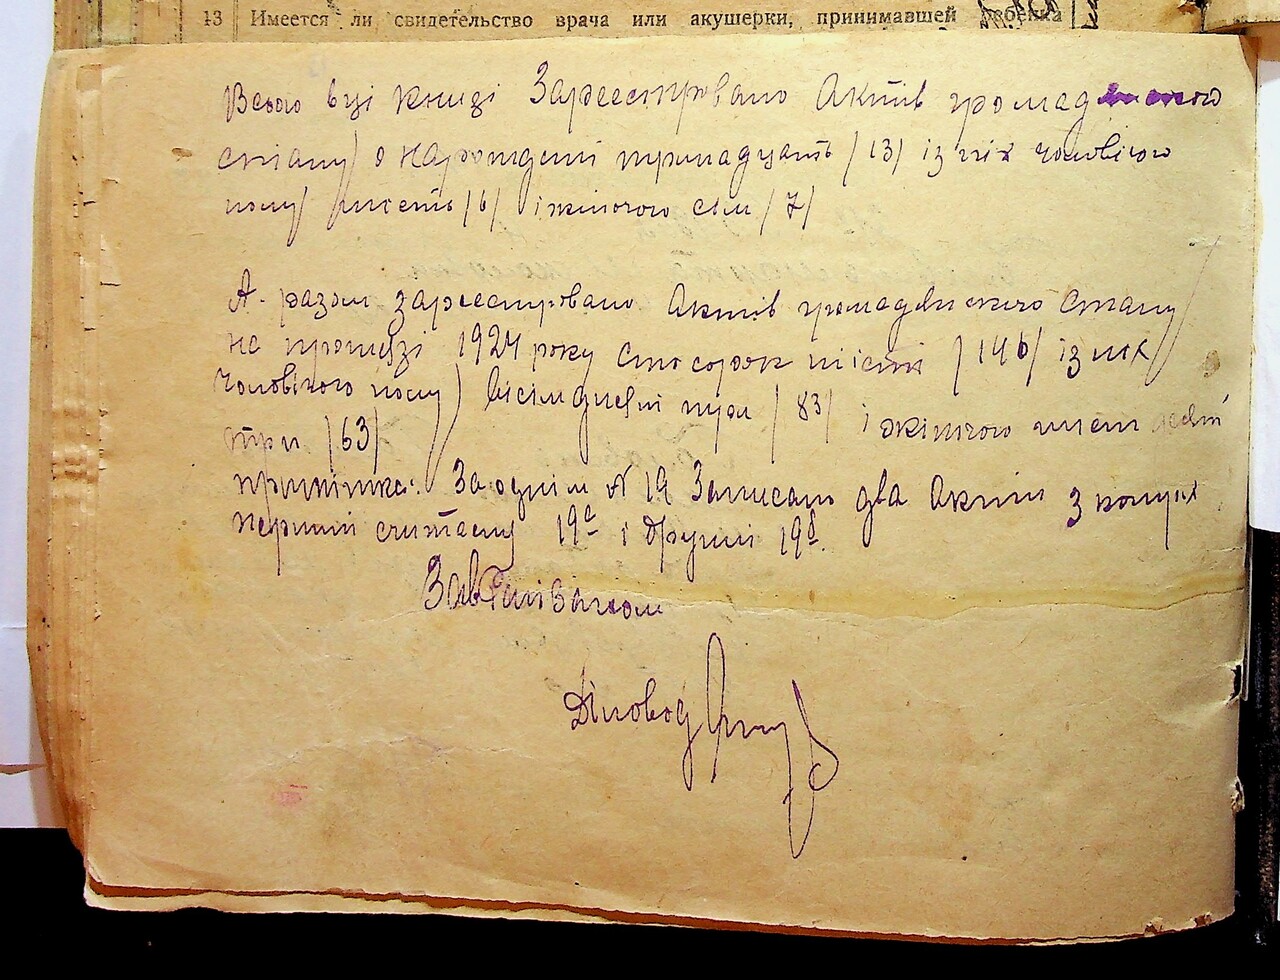 13 Имеется ли свидетельство врача или акушерки, принимавшей ребенка
Всього вці книзі Зареестровано Актів громадянського
стану о народженні тринадцять /13/ із них чоловічого
полу шість /6/ і жіночого сім /7/
А разом зареестровано Актів громадянського стану
на протязі 1924 року сто сорок шість /146/ із них
чоловічого полу вісімдесят три /83/ і жіночого шість десят
три /63/
примітка: За одним № 19 Записано два Акти з коїх
перший считаєму 19а і другий 19б.
Діловод